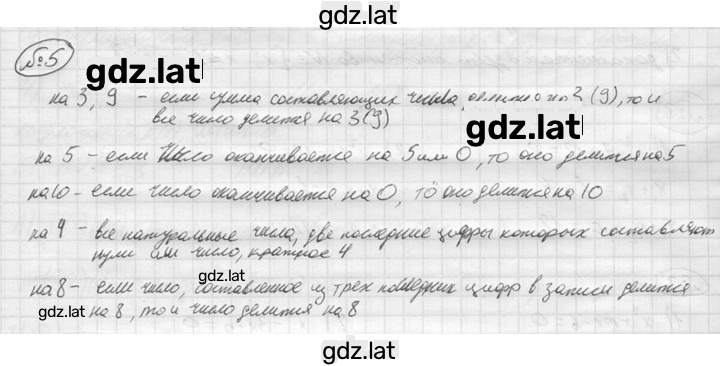 gdz.lat
№5
gdz.lat
на 3, 9 - если сумма составляющих числа, на 3 (9), то и
все число делится на 3(9)
gdz.lat
на 5 - если число оканчивается на 5 или 0, то оно делится на 5
на 10 - если число оканчивается на 0, то оно делится на 10
на 4 - все натуральные числа, две последние цифры которых составляют
нули или число, кратное 4
gdz.lat
на 8 - если число, составленное из трех последних цифр в записи делится
на 8, то и число делится на 8
gdz.lat
gdz.lat